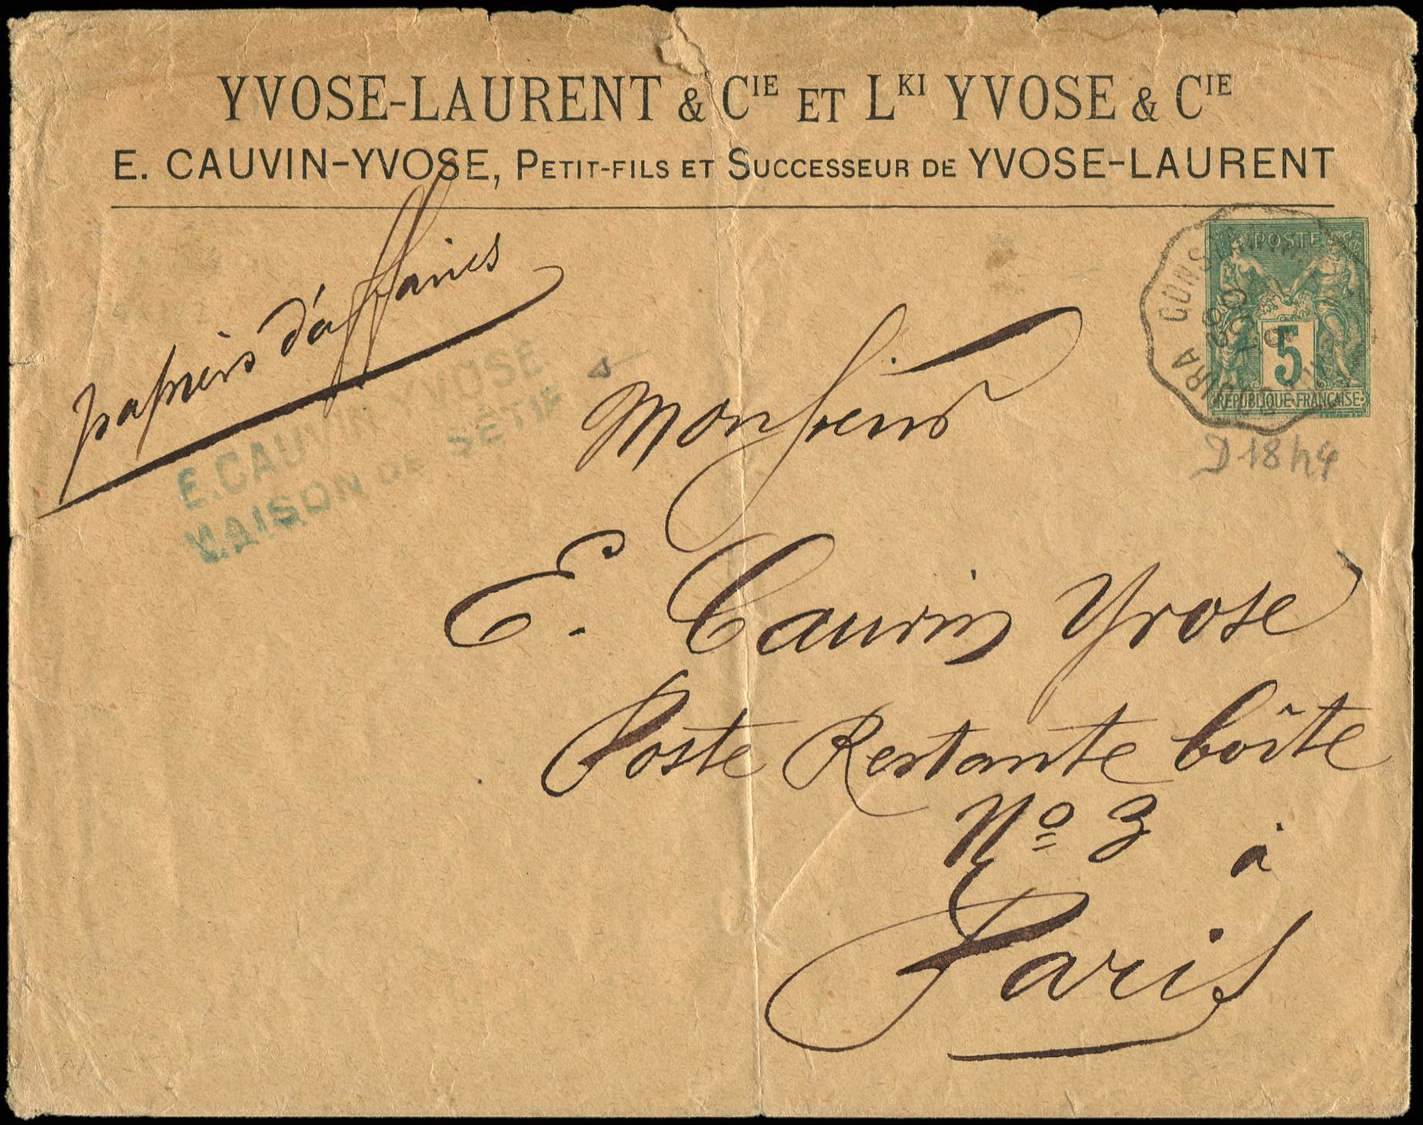 YVOSE-LAURENT & CIE ET LKI YVOSE & CIE
E. CAUVIN-YVOSE, PETIT-FILS ET SUCCESSEUR DE YVOSE-LAURENT
papiers d'affaires
E. CAUVIN-YVOSE
MAISON DE SÉTIF
POSTE
5
RÉPUBLIQUE FRANÇAISE
D18h4
Monsieur
E. Cauvin Yvose
Poste Restante boîte
No 3 à
Paris